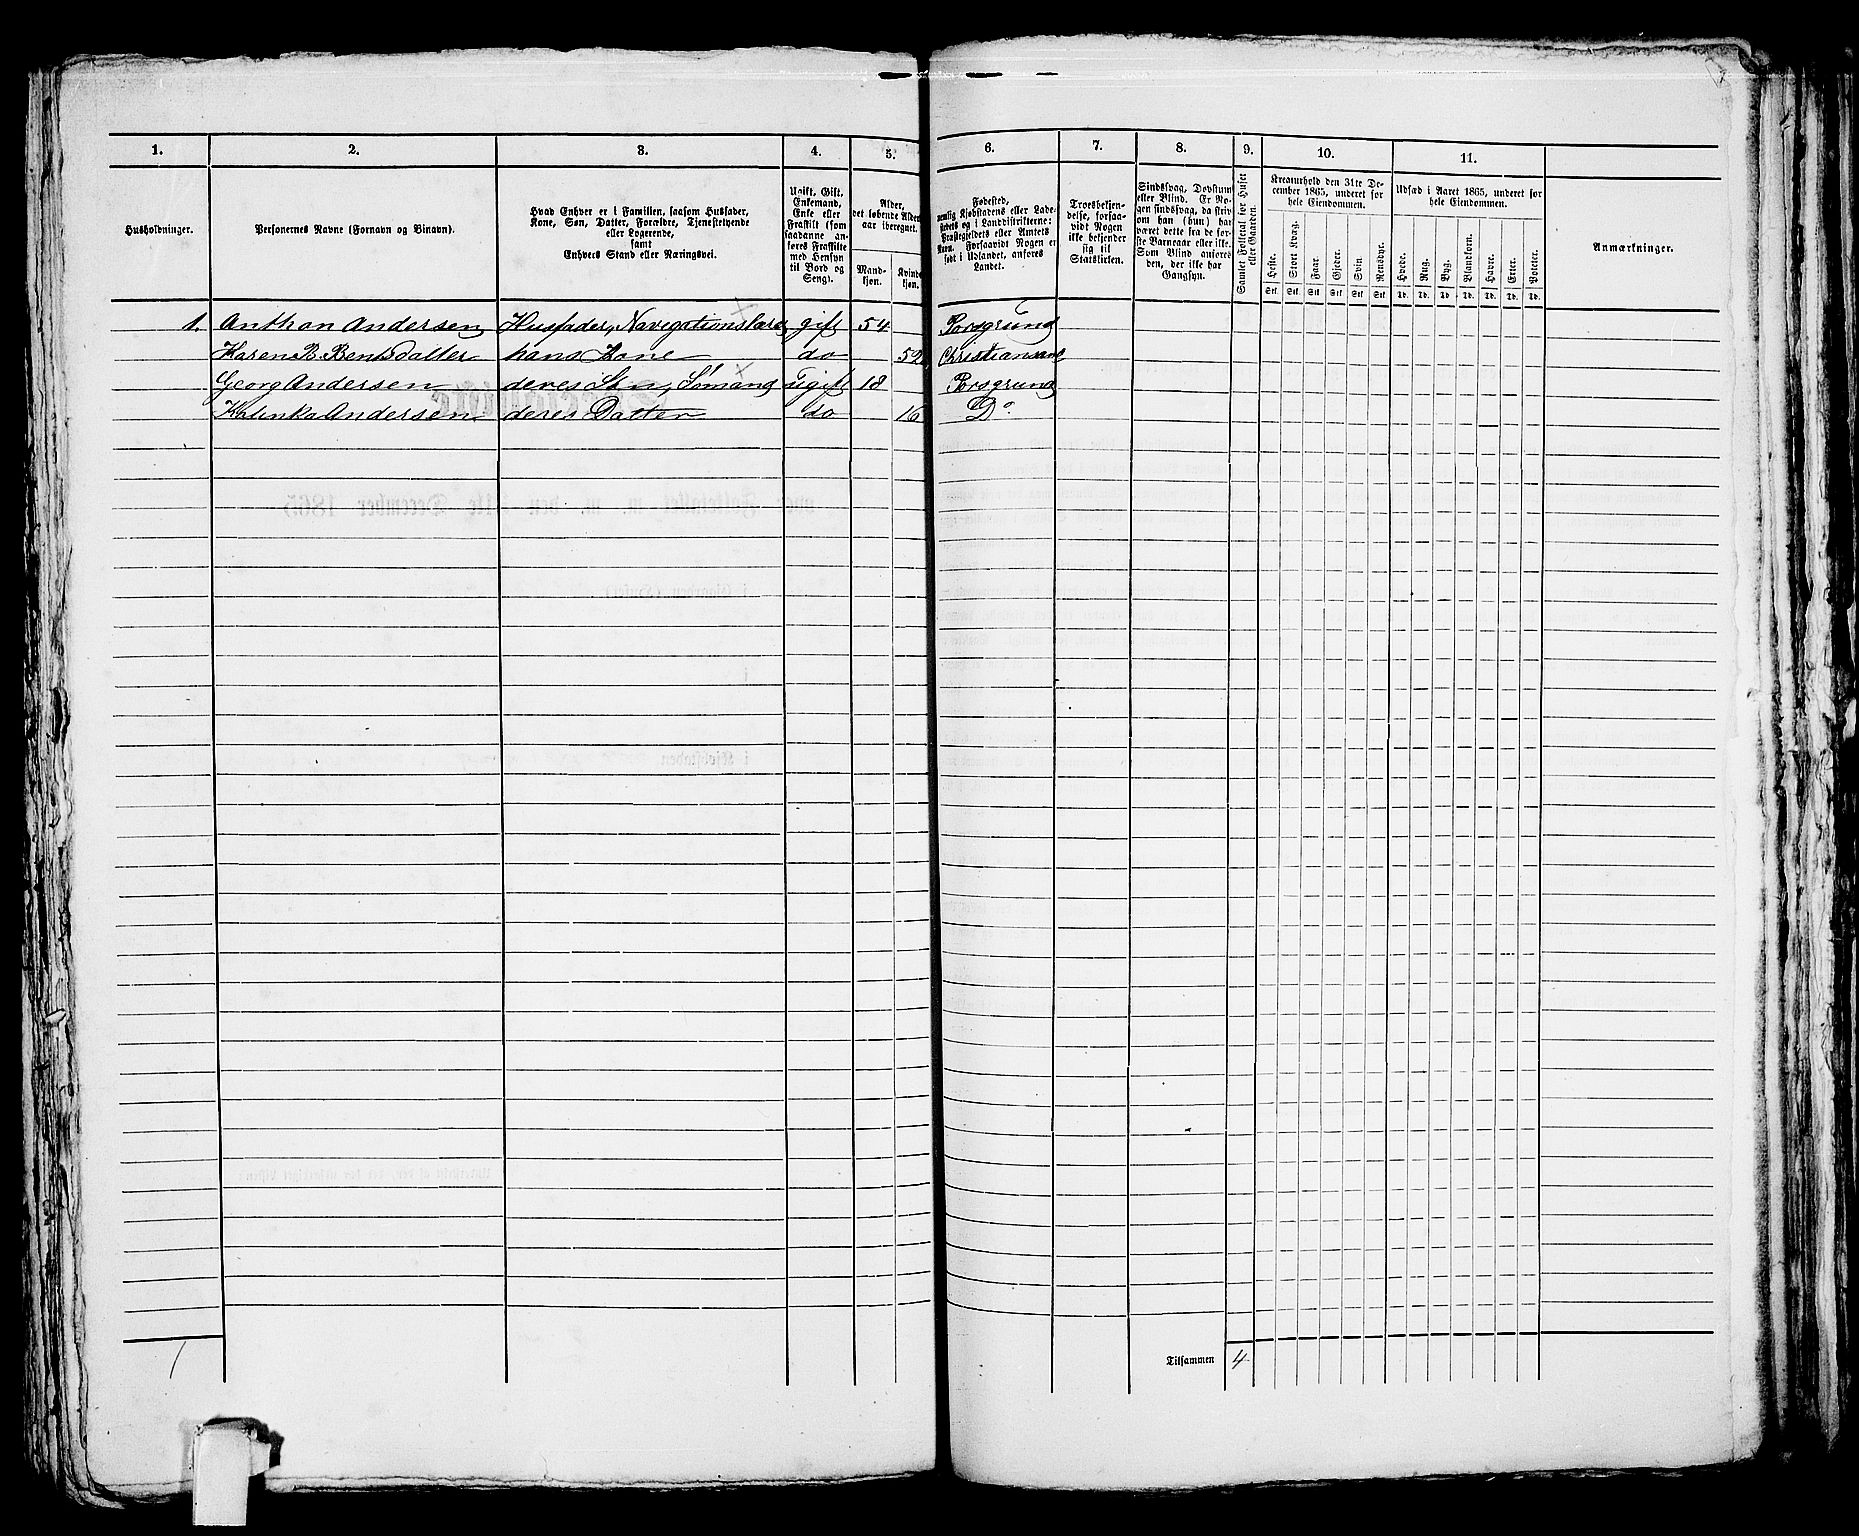 1. 2. 3. 4. 5. 6. 7. 8. 9. 10. 11.
Husholdninger.
Personernes Navne (Fornavn og Binavn).
Hvad Enhver er i Familien, saasom Husfader,
Kone, Søn, Datter, Forældre, Tjenestetyende
eller Logerende,
samt
Enhvers Stand eller Næringsvei.
Ugift, Gift,
Enkemand,
Enke eller
Fraskilt (som
saadanne an-
føres Fraskilte
med Hensyn
til Bord og
Seng).
Alder,
det løbende Alders-
aar iberegnet.
Mand-
kjøn.
Kvinde-
kjøn.
Fødested,
nemlig Kjøbstadens eller Lade-
stedets og i Landdistrikterne:
Præstegjeldets eller Amtets
Navn. Forsaavidt Nogen er
født i Udlandet, anføres
Landet.
Troesbekjen-
delse, forsaa-
vidt Nogen
ikke bekjender
sig til
Statskirken.
Sindssvag, Døvstum
eller Blind. Er No-
gen sindssvag, da skriv
om han (hun) har
været dette fra de før-
ste Barneaar eller ikke.
Som Blind anføres
den, der ikke har
Gangsyn.
Samlet Folketal for Huset
eller Gaarden.
Kreaturhold den 31te De-
cember 1865, underet for
hele Eiendommen.
Heste. Stort Kvæg. Faar. Gjeder. Svin. Rensdyr.
Stk. Stk. Stk. Stk. Stk. Stk.
Udsæd i Aaret 1865, underet for
hele Eiendommen.
Hvede. Rug. Byg. Blandkorn. Havre. Erter. Poteter.
Td. Td. Td. Td. Td. Td. Td.
Anmærkninger.
1. Anthon Andersen Husfader, Navegationslærer gift 54 Porsgrund
Karen B. Bentsdatter hans Kone do 52 Christiansand
Georg Andersen deres Søn, Sømand Ugift 18 Porsgrund
Kalinka Andersen deres Datter do 16 Do.
1 Tilsammen 4